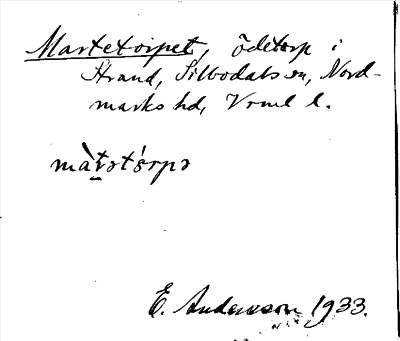 Martetorpet, ödetorp i
Strand, Silbodals sn, Nord-
marks hd, Vrml l.
màt̠ət$́rpə
E. Andersson 1933.